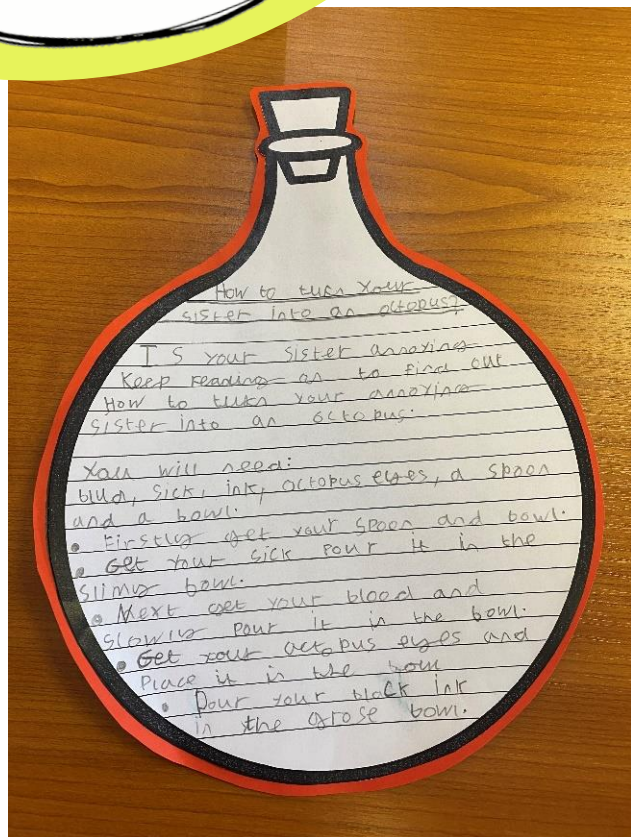 How to turn your
sister into an octopus?
IS your sister annoying
Keep reading on to find out
How to turn your annoying
sister into an octopus.
You will need:
blud, sick, ink, octopus eyes, a spoon
and a bowl.
• Firstly get your spoon and bowl.
• Get your sick pour it in the
slimy bowl.
• Next get your blood and
slowly pour it in the bowl.
• Get your octopus eyes and
Place it in the bowl
• Pour your black ink
in the grose bowl.